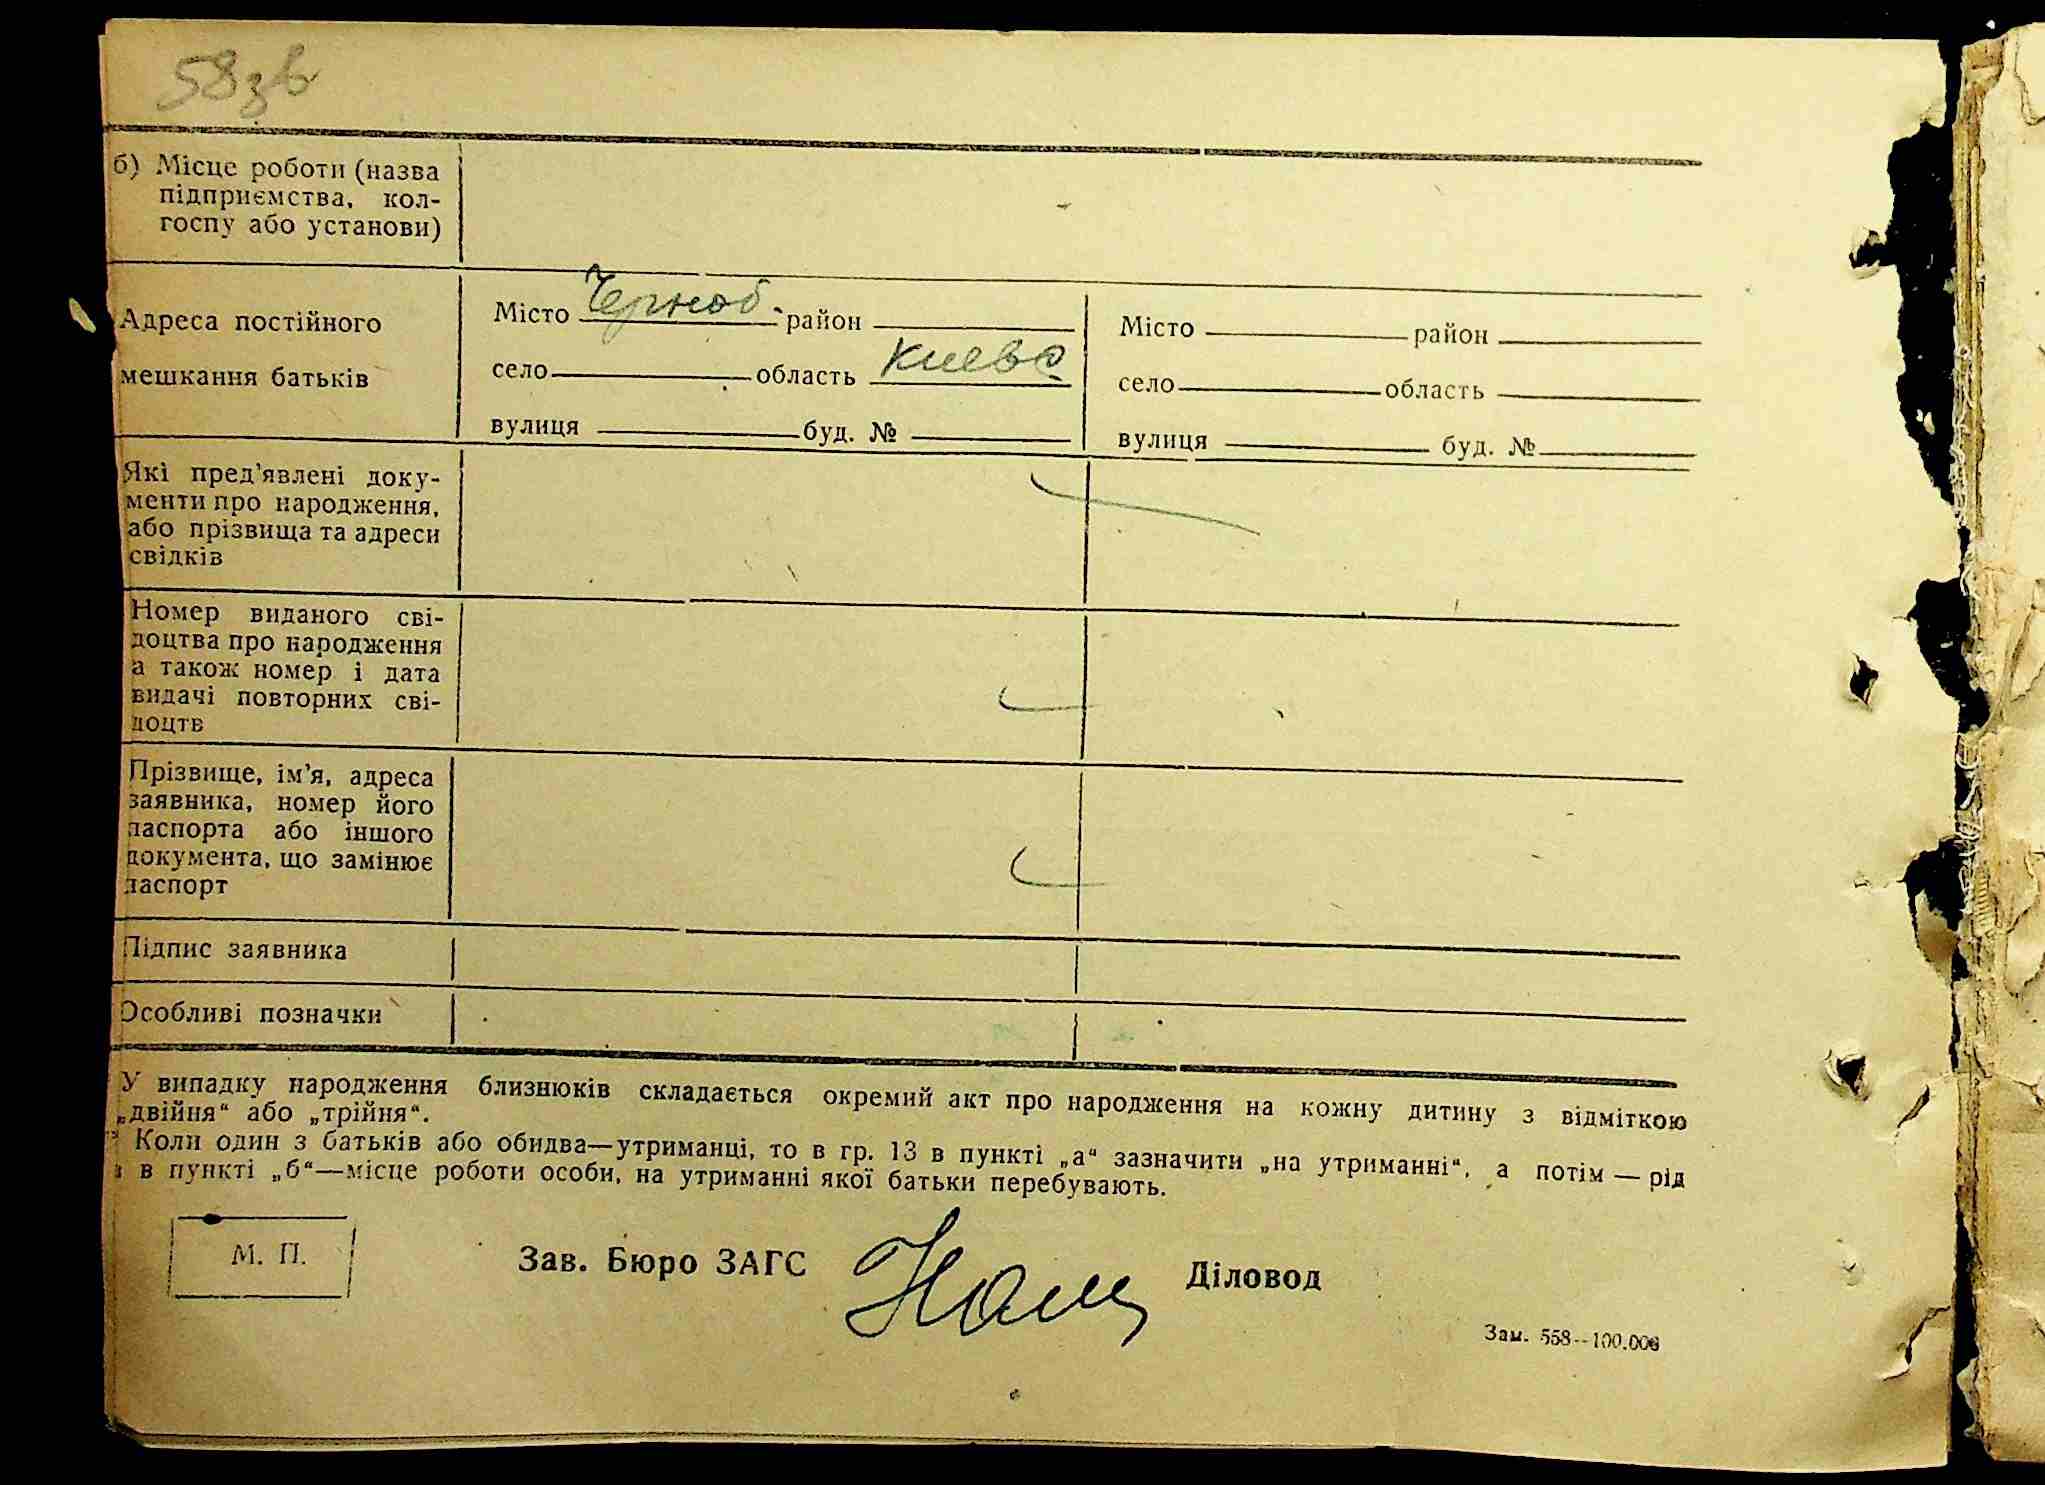 58зв
б) Місце роботи (назва
підприємства, кол-
госпу або установи)
Адреса постійного
мешкання батьків
Місто Черноб. район
село область Киевс
вулиця буд. №
Місто район
село область
вулиця буд. №
Які пред'явлені доку-
менти про народження,
або прізвища та адреси
свідків
Номер виданого сві-
доцтва про народження
а також номер і дата
видачі повторних сві-
доцтв
Прізвище, ім'я, адреса
заявника, номер його
паспорта або іншого
документа, що замінює
паспорт
Підпис заявника
Особливі позначки
У випадку народження близнюків складається окремий акт про народження на кожну дитину з відміткою
„двійня“ або „трійня“.
Коли один з батьків або обидва—утриманці, то в гр. 13 в пункті „а“ зазначити „на утриманні“, а потім — рід
в пункті „б“—місце роботи особи, на утриманні якої батьки перебувають.
М. П.
Зав. Бюро ЗАГС
Діловод
Зам. 558--100.000